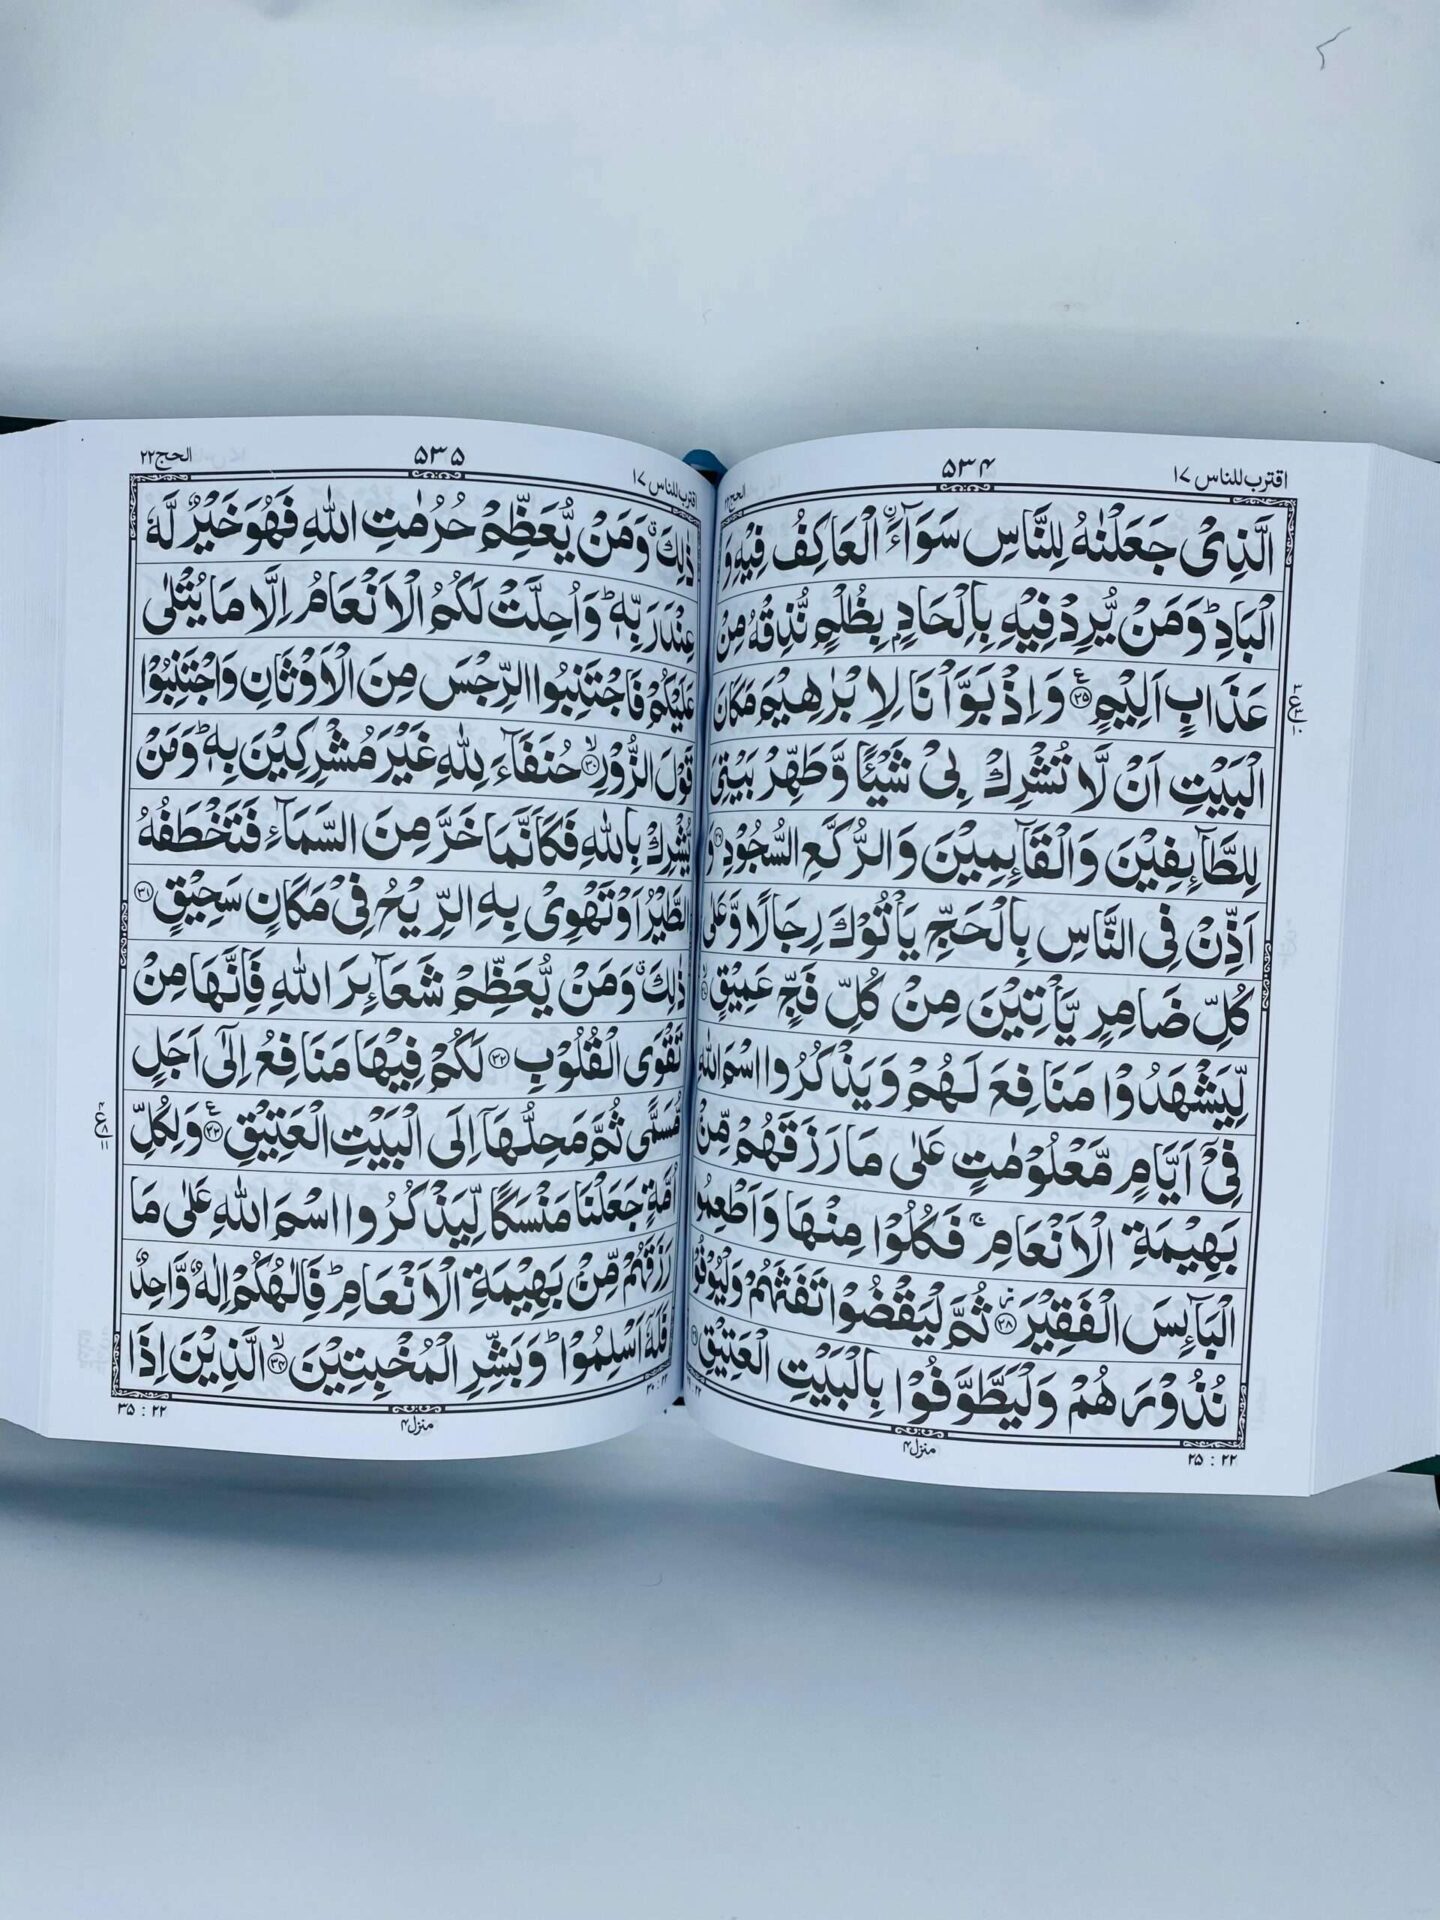 اقترب للناس ۱۷
۵۳۴
الحج ۲۲
الَّذِىْ جَعَلْنٰهُ لِلنَّاسِ سَوَآءَ ۨ الْعَاكِفُ فِيْهِ وَ
الْبَادِ ؕ وَمَنْ يُّرِدْ فِيْهِ بِاِلْحَادٍۭ بِظُلْمٍ نُّذِقْهُ مِنْ
عَذَابٍ اَلِيْمٍ ۟۲۵ وَاِذْ بَوَّاْنَا لِاِبْرٰهِيْمَ مَكَانَ
الْبَيْتِ اَنْ لَّا تُشْرِكْ بِىْ شَيْـًٔا وَّطَهِّرْ بَيْتِىَ
لِلطَّآىِٕفِيْنَ وَالْقَآىِٕمِيْنَ وَالرُّكَّعِ السُّجُوْدِ ۲۶ وَ
اَذِّنْ فِى النَّاسِ بِالْحَجِّ يَاْتُوْكَ رِجَالًا وَّعَلٰى
كُلِّ ضَامِرٍ يَّاْتِيْنَ مِنْ كُلِّ فَجٍّ عَمِيْقٍ ۙ۲۷
لِّيَشْهَدُوْا مَنَافِعَ لَهُمْ وَيَذْكُرُوا اسْمَ اللّٰهِ
فِىْٓ اَيَّامٍ مَّعْلُوْمٰتٍ عَلٰى مَا رَزَقَهُمْ مِّنْۢ
بَهِيْمَةِ الْاَنْعَامِ ۚ فَكُلُوْا مِنْهَا وَاَطْعِمُوا
الْبَآىِٕسَ الْفَقِيْرَ ۲۸ ثُمَّ لْيَقْضُوْا تَفَثَهُمْ وَلْيُوْفُوْا
نُذُوْرَهُمْ وَلْيَطَّوَّفُوْا بِالْبَيْتِ الْعَتِيْقِ ۲۹
منزل ۴
۲۵ : ۲۲
اقترب للناس ۱۷
۵۳۵
الحج ۲۲
ذٰلِكَ ۗ وَمَنْ يُّعَظِّمْ حُرُمٰتِ اللّٰهِ فَهُوَ خَيْرٌ لَّهٗ
عِنْدَ رَبِّهٖ ؕ وَاُحِلَّتْ لَكُمُ الْاَنْعَامُ اِلَّا مَا يُتْلٰى
عَلَيْكُمْ فَاجْتَنِبُوا الرِّجْسَ مِنَ الْاَوْثَانِ وَاجْتَنِبُوْا
قَوْلَ الزُّوْرِ ۙ۳۰ حُنَفَآءَ لِلّٰهِ غَيْرَ مُشْرِكِيْنَ بِهٖ ؕ وَمَنْ
يُّشْرِكْ بِاللّٰهِ فَكَاَنَّمَا خَرَّ مِنَ السَّمَآءِ فَتَخْطَفُهُ
الطَّيْرُ اَوْ تَهْوِىْ بِهِ الرِّيْحُ فِىْ مَكَانٍ سَحِيْقٍ ۳۱
ذٰلِكَ ۗ وَمَنْ يُّعَظِّمْ شَعَآىِٕرَ اللّٰهِ فَاِنَّهَا مِنْ
تَقْوَى الْقُلُوْبِ ۳۲ لَكُمْ فِيْهَا مَنَافِعُ اِلٰٓى اَجَلٍ
مُّسَمًّى ثُمَّ مَحِلُّهَاۤ اِلَى الْبَيْتِ الْعَتِيْقِ ۳۳ وَلِكُلِّ
اُمَّةٍ جَعَلْنَا مَنْسَكًا لِّيَذْكُرُوا اسْمَ اللّٰهِ عَلٰى مَا
رَزَقَهُمْ مِّنْۢ بَهِيْمَةِ الْاَنْعَامِ ؕ فَاِلٰهُكُمْ اِلٰهٌ وَّاحِدٌ
فَلَهٗۤ اَسْلِمُوْا ؕ وَبَشِّرِ الْمُخْبِتِيْنَ ۙ۳۴ الَّذِيْنَ اِذَا
۳۰ : ۲۲
منزل ۴
۳۵ : ۲۲